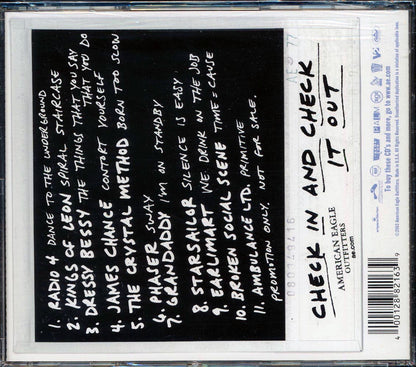 1. RADIO 4 DANCE TO THE UNDERGROUND
2. KINGS OF LEON SPIRAL STAIRCASE
3. DRESSY BESSY THE THINGS THAT YOU SAY
THAT YOU DO
4. JAMES CHANCE CONTORT YOURSELF
5. THE CRYSTAL METHOD BORN TOO SLOW
6. PHASER SWAY
7. GRANDADDY I'M ON STANDBY
8. STARSAILOR SILENCE IS EASY
9. EARLIMART WE DRINK ON THE JOB
10. BROKEN SOCIAL SCENE TIME = CAUSE
11. AMBULANCE LTD. PRIMITIVE
PROMOTION ONLY. NOT FOR SALE.
CHECK IN AND CHECK
IT OUT
AMERICAN EAGLE
OUTFITTERS
ae.com
To buy these CD's and more, go to www.ae.com
4 00128 82163 9